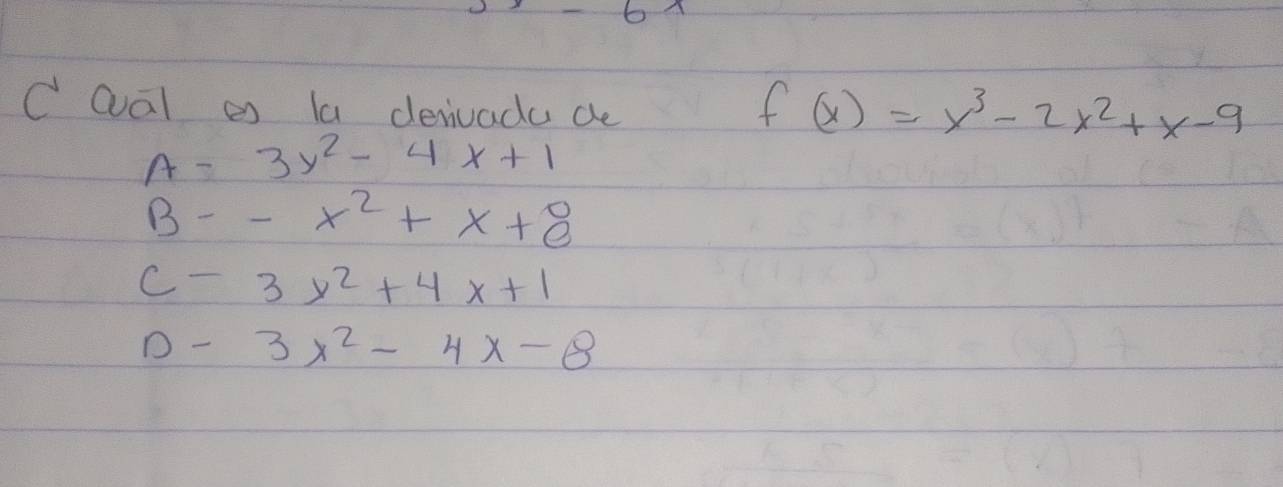 ¿Cuál es la derivada de f(x) = x³ - 2x² + x - 9
A - 3x² - 4x + 1
B - - x² + x + 8
C - 3x² + 4x + 1
D - 3x² - 4x - 8